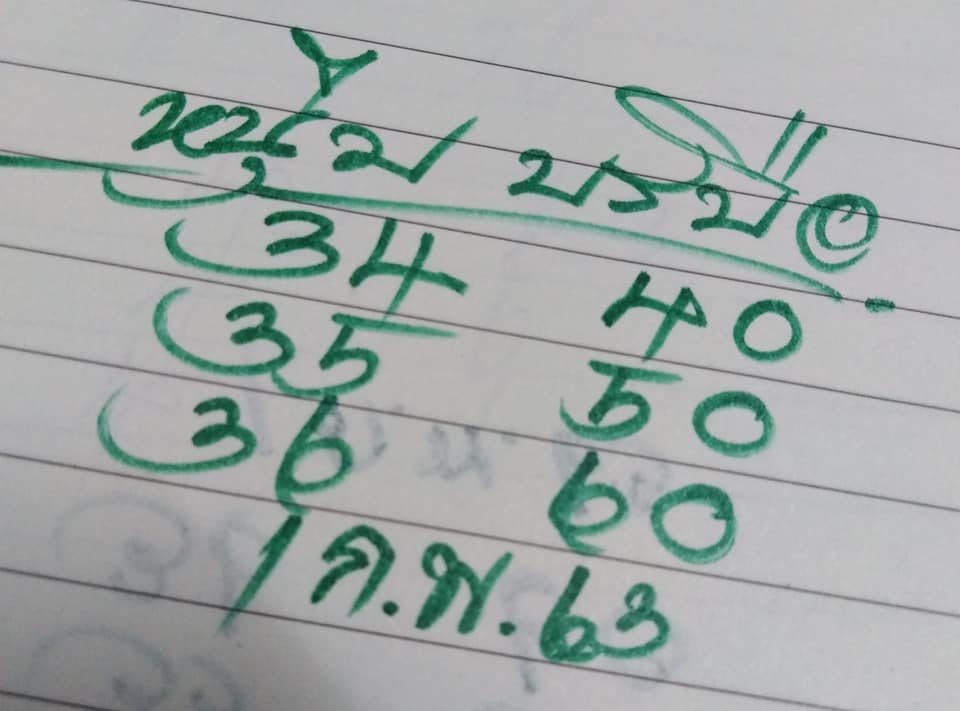 หนุ่ม บรบือ
34 40
35 50
36 60
1 ก.พ. 63